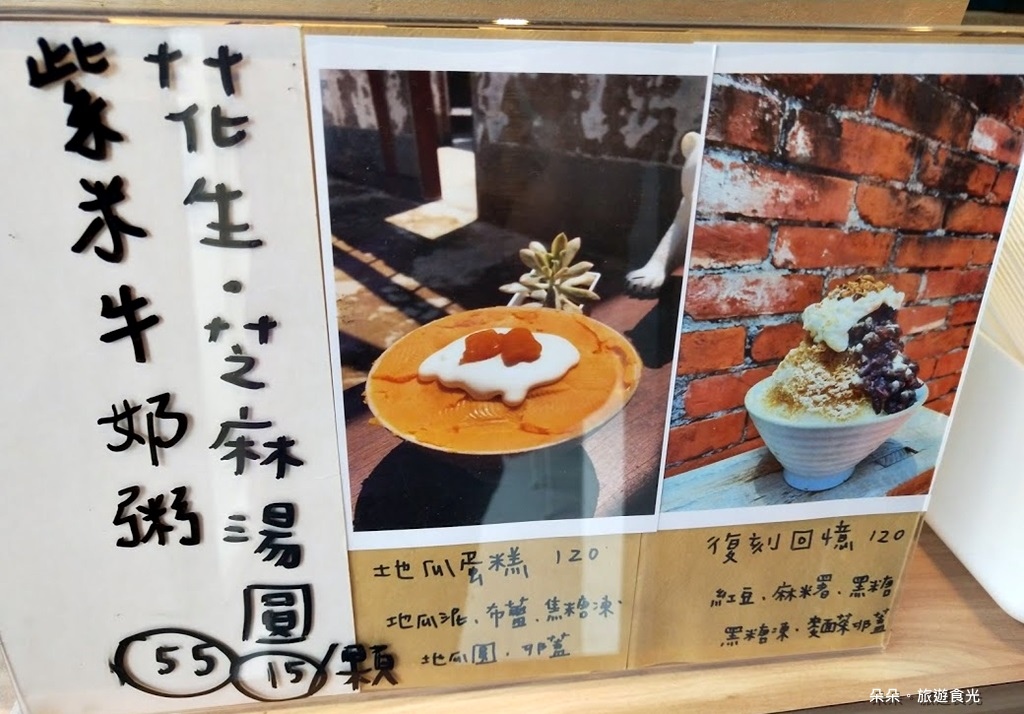 花生·芝麻湯圓
15/顆
紫米牛奶粥
55
地瓜蛋糕 120
地瓜泥、布蕾、焦糖凍、
地瓜圓、奶蓋
復刻回憶 120
紅豆、麻米署、黑糖
黑糖凍、麵茶奶蓋
朵朵。旅遊食光